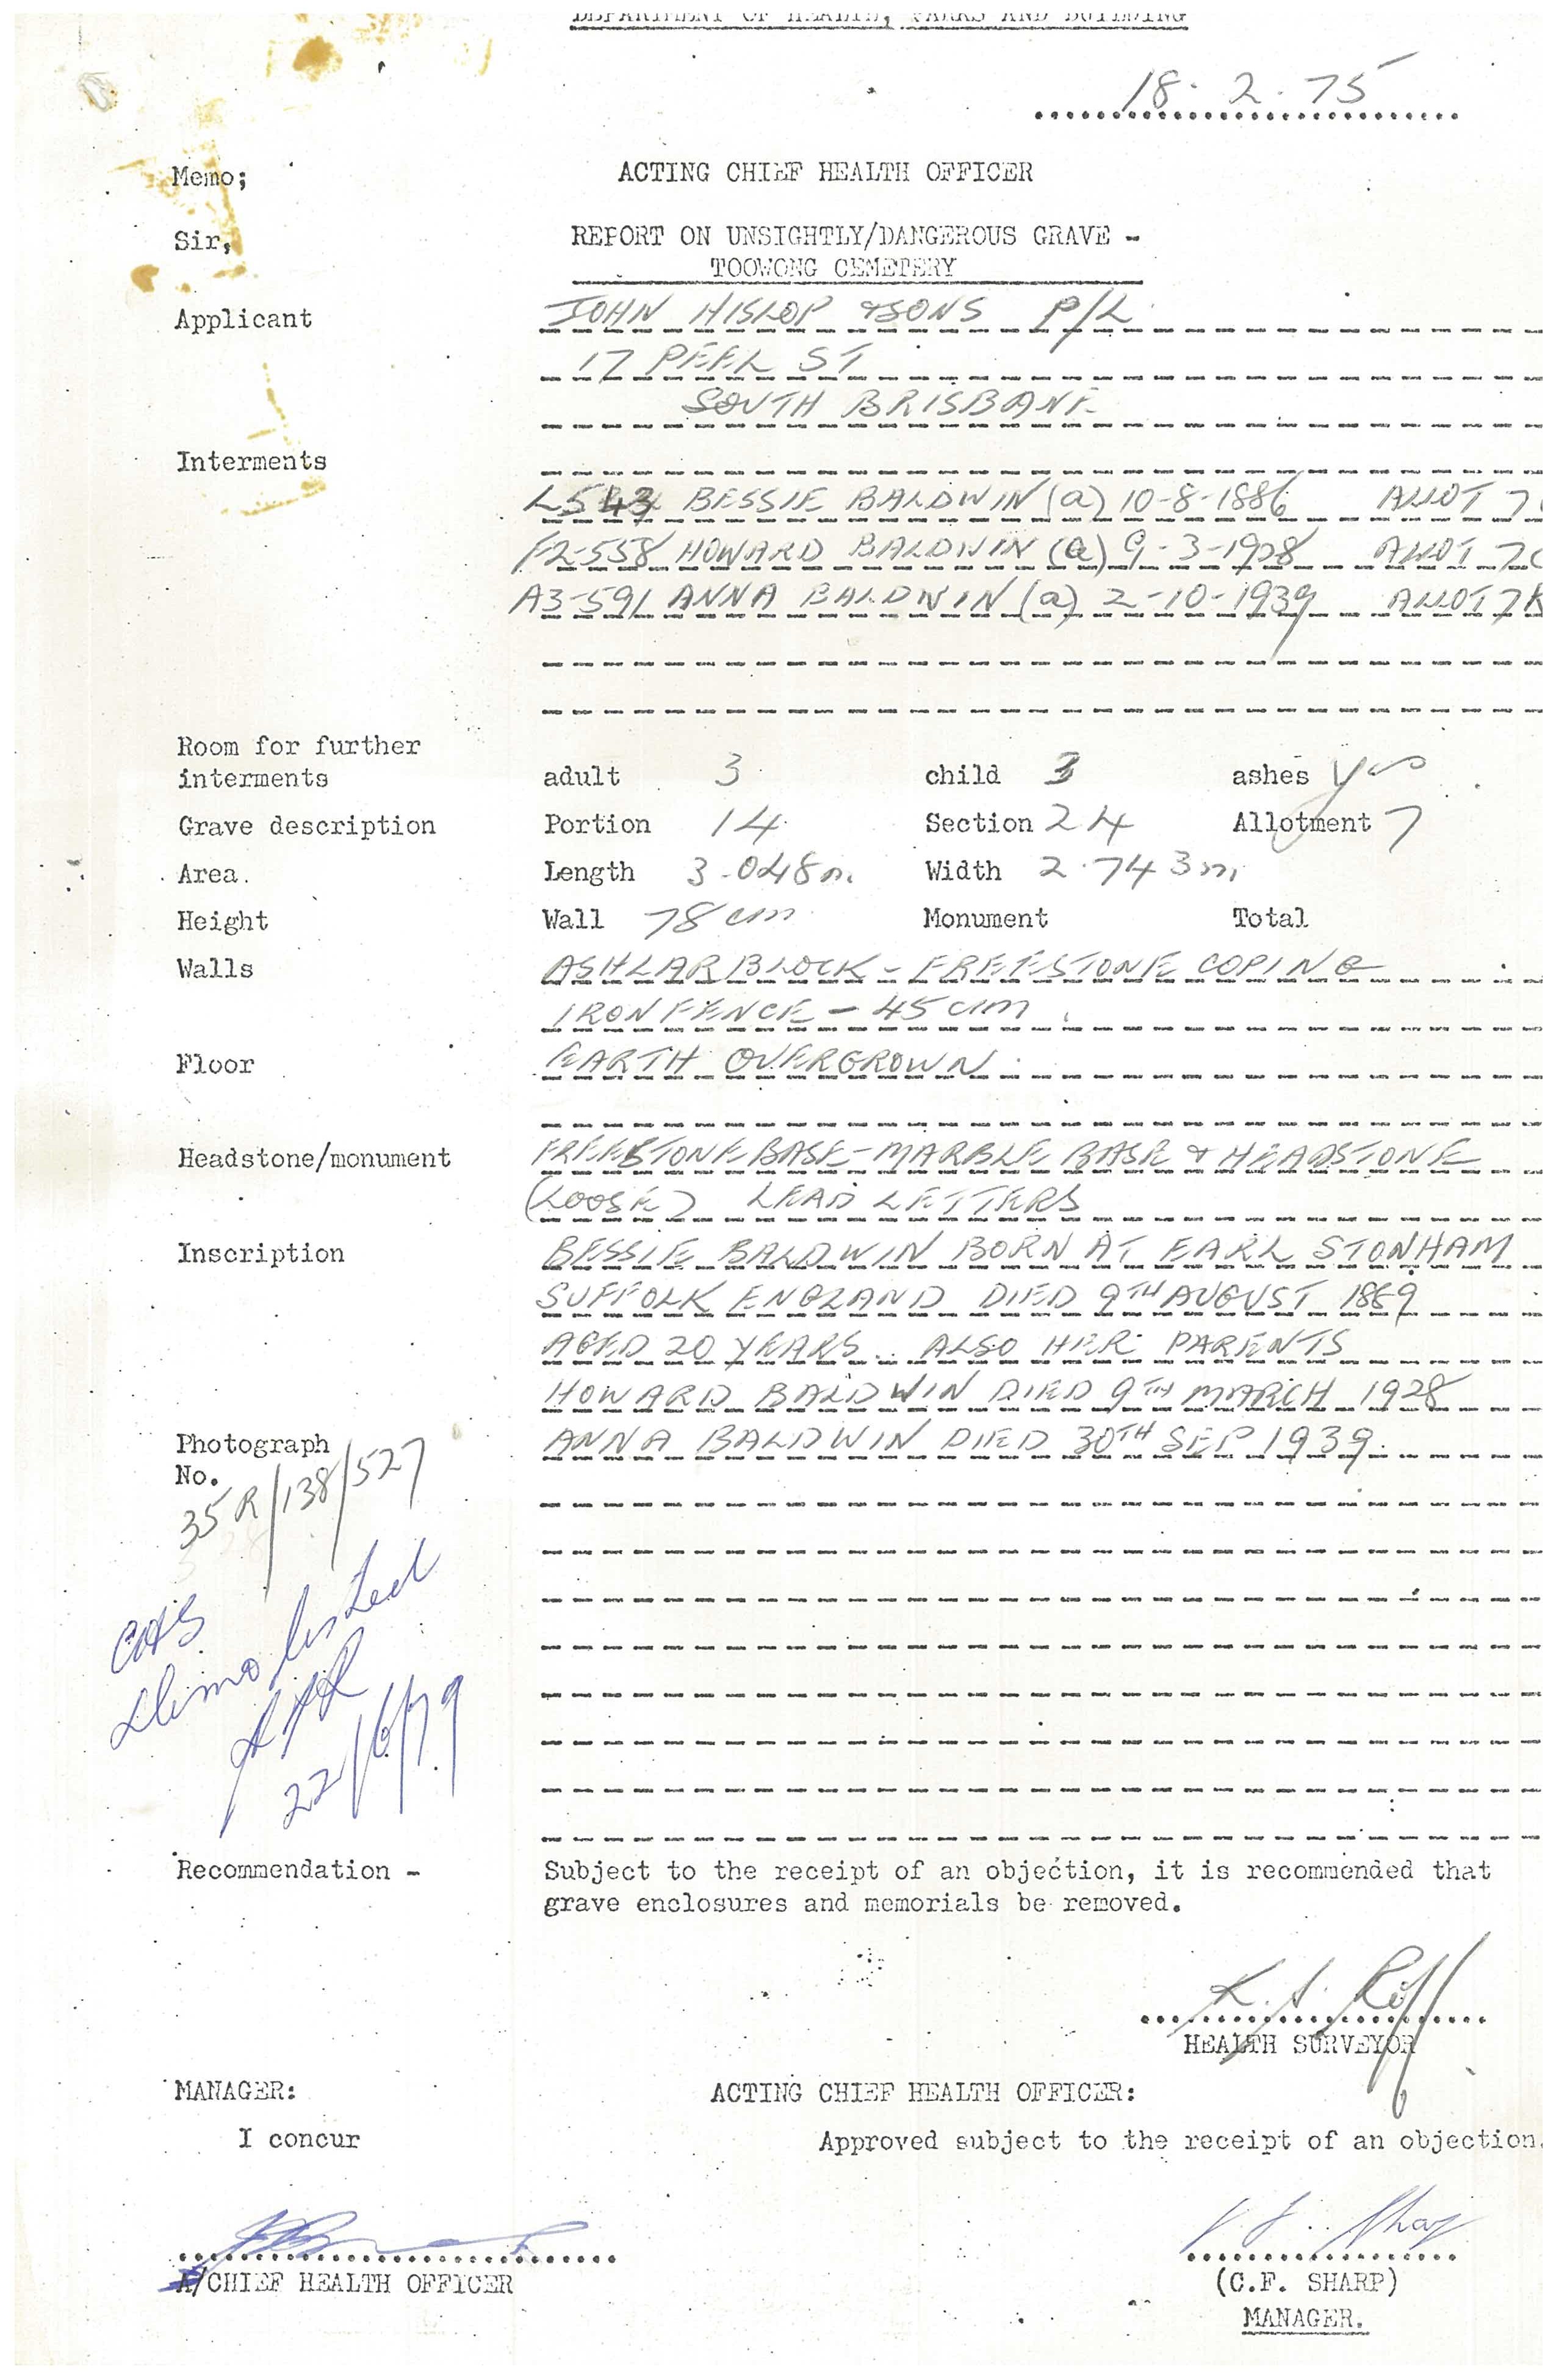 DEPARTMENT OF HEALTH, PARKS AND BUILDING
18. 2. 75
Memo; ACTING CHIEF HEALTH OFFICER
Sir, REPORT ON UNSIGHTLY/DANGEROUS GRAVE -
TOOWONG CEMETERY
Applicant JOHN HISLOP & SONS P/L
17 PEEL ST
SOUTH BRISBANE
Interments
L543 BESSIE BALDWIN (a) 10-8-1886 ALLOT 7
F2-558 HOWARD BALDWIN (a) 9-3-1928 ALLOT 7
A3-591 ANNA BALDWIN (a) 2-10-1939 ALLOT 7
Room for further
interments adult 3 child 3 ashes yes
Grave description Portion 14 Section 24 Allotment 7
Area. Length 3.048m. Width 2.743m
Height Wall 78 cm Monument Total
Walls ASHLAR BLOCK - FREESTONE COPING
IRON FENCE - 45 cm
Floor EARTH OVERGROWN
Headstone/monument FREESTONE BASE - MARBLE BASE & HEADSTONE
(LOOSE) LEAD LETTERS
Inscription BESSIE BALDWIN BORN AT EARL STONHAM
SUFFOLK ENGLAND DIED 9TH AUGUST 1889
AGED 20 YEARS.. ALSO HER PARENTS
HOWARD BALDWIN DIED 9TH MARCH 1928
Photograph ANNA BALDWIN DIED 30TH SEP 1939.
No.
35R/138/527
Demolished
22/6/79
Recommendation - Subject to the receipt of an objection, it is recommended that
grave enclosures and memorials be removed.
HEALTH SURVEYOR
MANAGER: ACTING CHIEF HEALTH OFFICER:
I concur Approved subject to the receipt of an objection.
A/CHIEF HEALTH OFFICER (C.F. SHARP)
MANAGER.